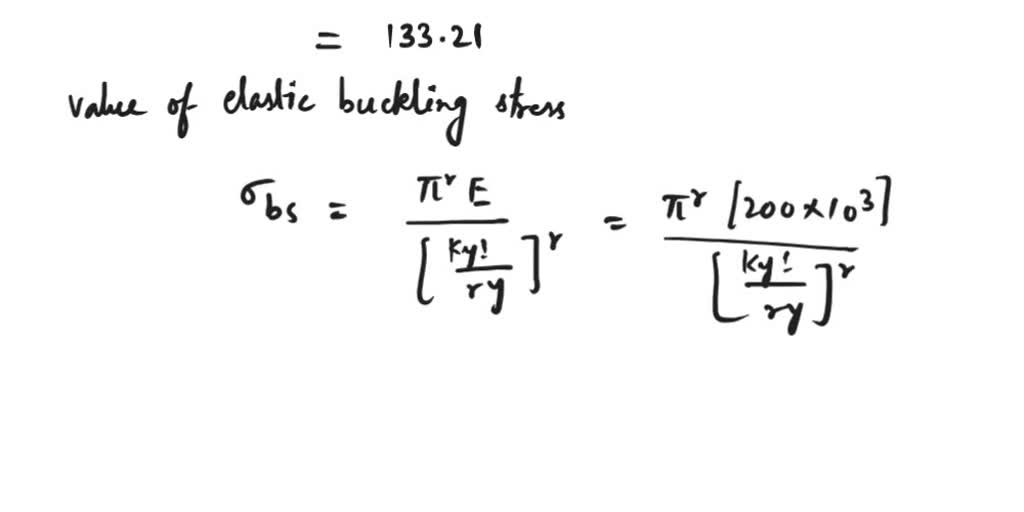 = 133.21
value of elastic buckling stress
σbs = π² E / [ky! / ry]² = π² [200×10³] / [ky! / ry]²